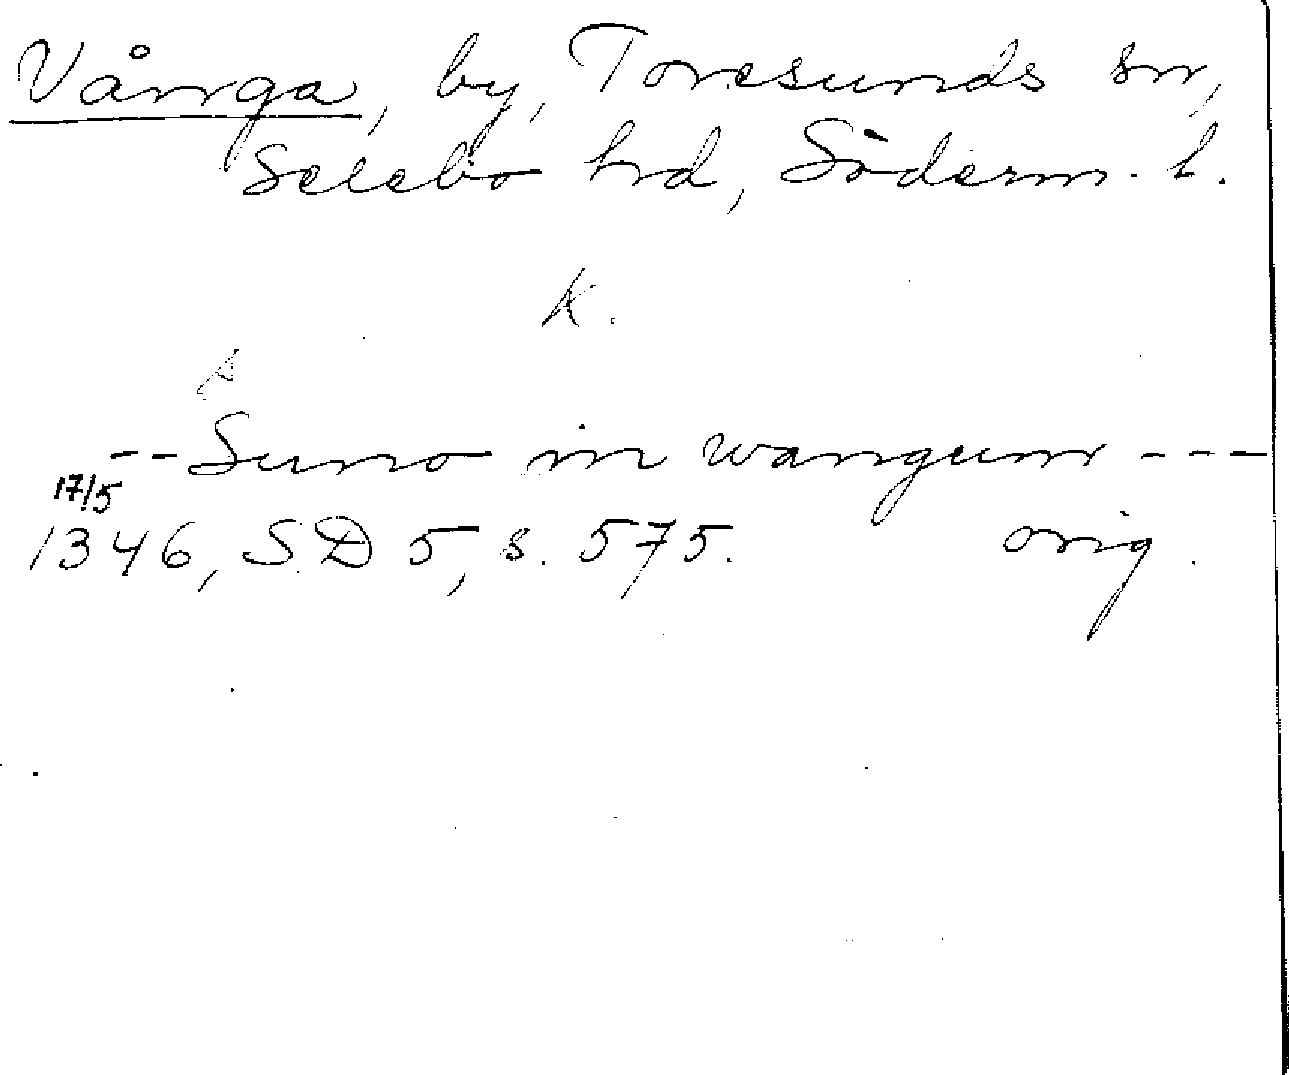 Vånga, by, Toresunds sn,
Selebo hd, Söderm. l.
K.
A
-- Suno in wangum ---
17/5
1346, S.D 5, s. 575. orig.